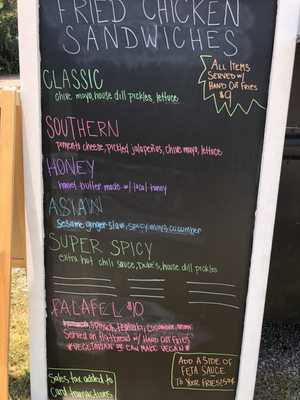 FRIED CHICKEN
SANDWICHES
ALL ITEMS
SERVED w/
HAND CUT FRIES
$9
CLASSIC
chive mayo, house dill pickles, lettuce
SOUTHERN
pimento cheese, pickled jalapeños, chive mayo, lettuce
HONEY
honey butter made w/ local honey
ASIAN
Sesame, ginger slaw, spicy mayo, cucumber
SUPER SPICY
extra hot chili sauce, Duke's, house dill pickles
FALAFEL $10
spinach, cucumber,
Served on flatbread w/ HAND CUT FRIES
*VEGETARIAN OR CAN MAKE VEGAN*
ADD A SIDE OF
FETA SAUCE
TO YOUR FRIES! 50¢
Sales tax added to
Card transactions